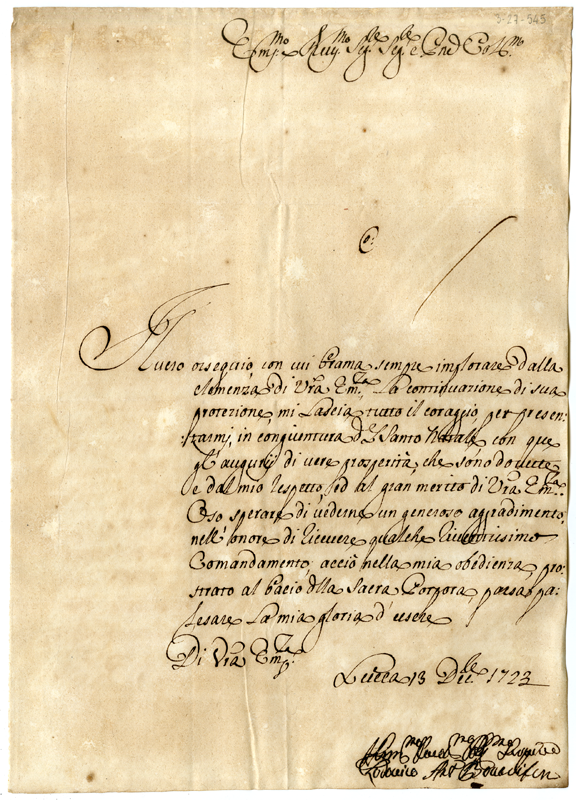 3-27-545
Em.mo Rev.mo Sig.re Sig.re e Pnē Col.mo
Il vero ossequio, con cui brama sempre implorare dalla
clemenza di Vrā Em.za, La continuazione di sua
protezione, mi Lascia tutto il coraggio per presen:
:tarmi, in congiuntura del Santo Natale con que
gl'augurij di vere prosperità, che sono dovute
e dal mio respetto, ed al gran merito di Vrā Em.za
Oso sperare di vederne un generoso aggradimento,
nell'onore di ricevere qualche riveritissimo
Comandamento, acciò nella mia obedienza, pro:
strato al bacio dlla Sacra Porpora, possa pa:
lesare La mia gloria d'essere
Di Vrā Em.za
Lucca 13 Dic.re 1723
Lodovico Ant.